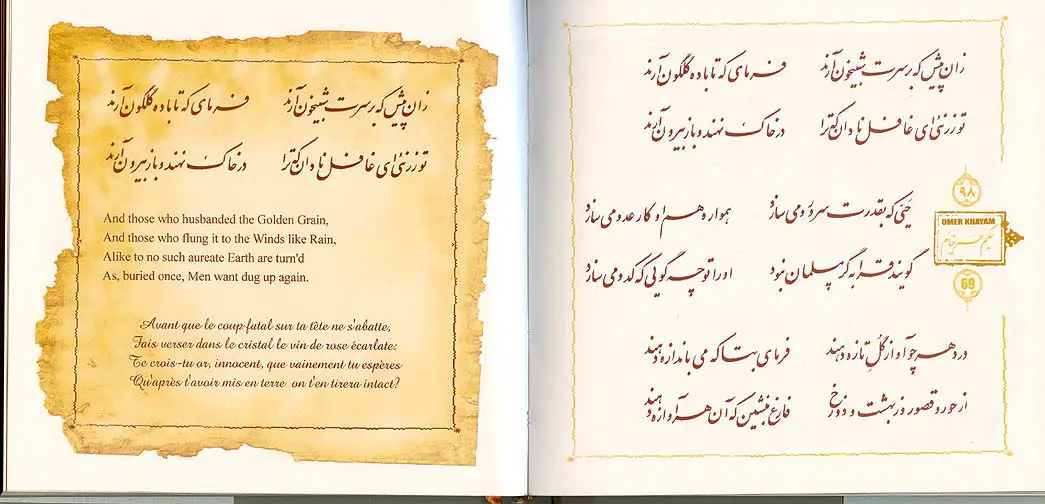 زان پیش که بر سرت شبیخون آرند فرمای که تا باده گلگون آرند
تو زرنئی ای غافل نادان که ترا در خاک نهند و باز بیرون آرند
And those who husbanded the Golden Grain,
And those who flung it to the Winds like Rain,
Alike to no such aureate Earth are turn'd
As, buried once, Men want dug up again.
Avant que le coup fatal sur ta tête ne s'abatte,
Fais verser dans le cristal le vin de rose écarlate:
Te crois-tu or, innocent, que vainement tu espères
Qu'après t'avoir mis en terre on t'en tirera intact?
زان پیش که بر سرت شبیخون آرند فرمای که تا باده گلگون آرند
تو زرنئی ای غافل نادان که ترا در خاک نهند و باز بیرون آرند
حیی که بقدرت سر و رو می سازد همواره هم او کار عدو می سازد
گویند قرابه گر مسلمان نبود او را تو چه گویی که کدو می سازد
در دهر چو آواز گل تازه دهند فرمای بتا که می باندازه دهند
از حور و قصور و ز بهشت و دوزخ فارغ بنشین که آن هر آوازه دهند
۹۸
OMER KHAYAM
حکیم عمر خیام
69